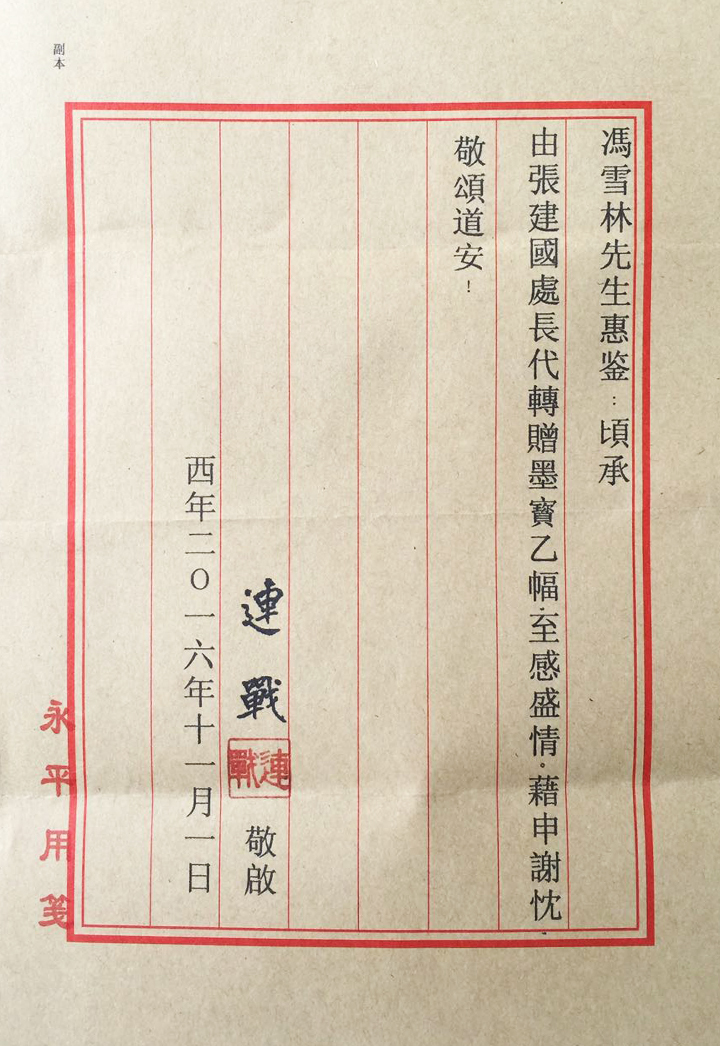 副本
馮雪林先生惠鉴：頃承
由張建國處長代轉贈墨寶乙幅．至感盛情．藉申謝忱．
敬頌道安！
連戰
連戰
敬啟
西年二〇一六年十一月一日
永平用箋